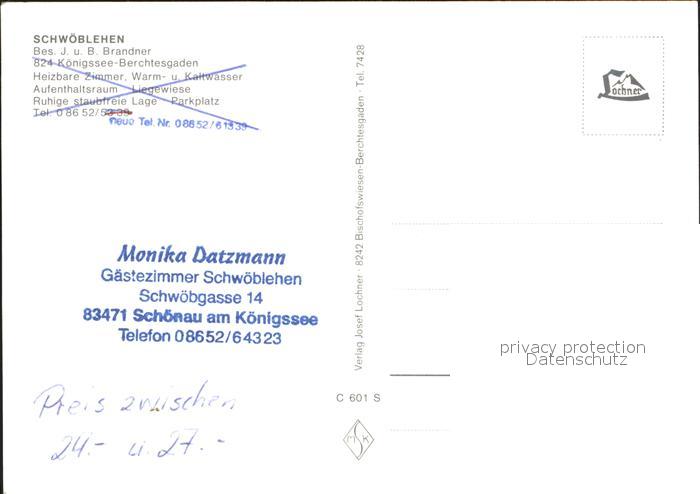 SCHWÖBLEHEN
Bes. J. u. B. Brandner
824 Königssee-Berchtesgaden
Heizbare Zimmer, Warm- u. Kaltwasser
Aufenthaltsraum · Liegewiese
Ruhige staubfreie Lage · Parkplatz
Tel. 0 86 52/53 39
neue Tel. Nr. 0 86 52 / 6 13 39
Monika Datzmann
Gästezimmer Schwöblehen
Schwöbgasse 14
83471 Schönau am Königssee
Telefon 0 86 52/6 43 23
Preis zwischen
24.- u. 27.-
Verlag Josef Lochner · 8242 Bischofswiesen-Berchtesgaden · Tel. 7428
C 601 S
MSK
Lochner
privacy protection
Datenschutz